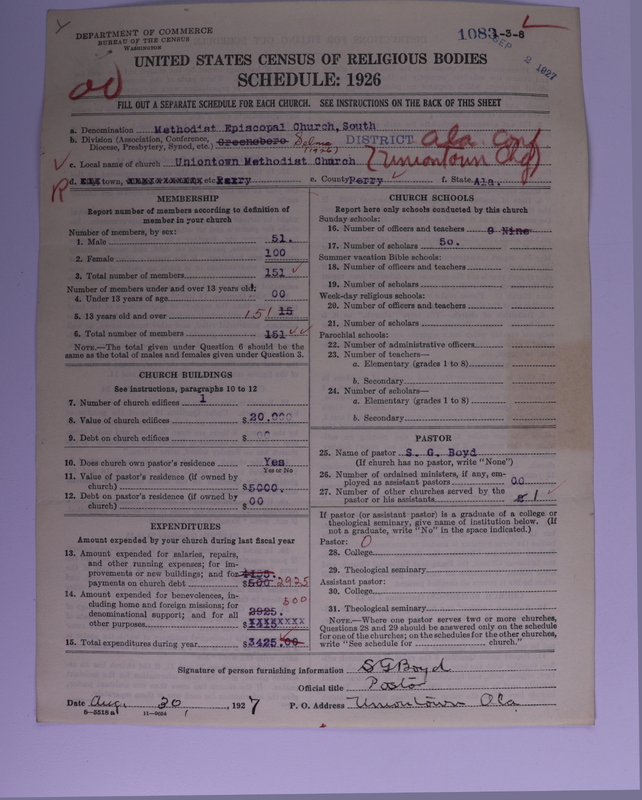 DEPARTMENT OF COMMERCE
BUREAU OF THE CENSUS
WASHINGTON
1083 1-3-8
SEP 2 1927
UNITED STATES CENSUS OF RELIGIOUS BODIES
SCHEDULE: 1926
FILL OUT A SEPARATE SCHEDULE FOR EACH CHURCH. SEE INSTRUCTIONS ON THE BACK OF THIS SHEET
a. Denomination Methodist Episcopal Church, South
b. Division (Association, Conference, Diocese, Presbytery, Synod, etc.) Greensboro Selma (1926) DISTRICT Ala Conf
c. Local name of church Uniontown Methodist Church (Uniontown Chg)
R d. town, etc. Perry e. County Perry f. State Ala.
MEMBERSHIP
Report number of members according to definition of
member in your church
Number of members, by sex:
1. Male 51.
2. Female 100
3. Total number of members 151
Number of members under and over 13 years old:
4. Under 13 years of age 00
5. 13 years old and over 151 15
6. Total number of members 151
NOTE.—The total given under Question 6 should be
same as the total of males and females given under Question 3.
CHURCH BUILDINGS
See instructions, paragraphs 10 to 12
7. Number of church edifices 1
8. Value of church edifices $20.000
9. Debt on church edifices $ 00
10. Does church own pastor's residence Yes
Yes or No
11. Value of pastor's residence (if owned by
church) $5000.
12. Debt on pastor's residence (if owned by
church) $ 00
EXPENDITURES
Amount expended by your church during last fiscal year
13. Amount expended for salaries, repairs,
and other running expenses; for im-
provements or new buildings; and for
payments on church debt $500 2925
14. Amount expended for benevolences, in-
cluding home and foreign missions; for 500
denominational support; and for all 2925.
other purposes $
15. Total expenditures during year $3425.00
CHURCH SCHOOLS
Report here only schools conducted by this church
Sunday schools:
16. Number of officers and teachers 9 Nine
17. Number of scholars 50.
Summer vacation Bible schools:
18. Number of officers and teachers
19. Number of scholars
Week-day religious schools:
20. Number of officers and teachers
21. Number of scholars
Parochial schools:
22. Number of administrative officers
23. Number of teachers—
a. Elementary (grades 1 to 8)
b. Secondary
24. Number of scholars—
a. Elementary (grades 1 to 8)
b. Secondary
PASTOR
25. Name of pastor S. G. Boyd
(If church has no pastor, write "None")
26. Number of ordained ministers, if any, em-
ployed as assistant pastors 00
27. Number of other churches served by the
pastor or his assistants 1
If pastor (or assistant pastor) is a graduate of a college or
theological seminary, give name of institution below. (If
not a graduate, write "No" in the space indicated.)
Pastor: 0
28. College
29. Theological seminary
Assistant pastor:
30. College
31. Theological seminary
NOTE.—Where one pastor serves two or more churches,
Questions 28 and 29 should be answered only on the schedule
for one of the churches; on the schedules for the other churches,
write "See schedule for church."
Signature of person furnishing information S G Boyd
Official title Pastor
Date Aug. 30, 1927 P. O. Address Uniontown Ala
8-5518a 11-9064